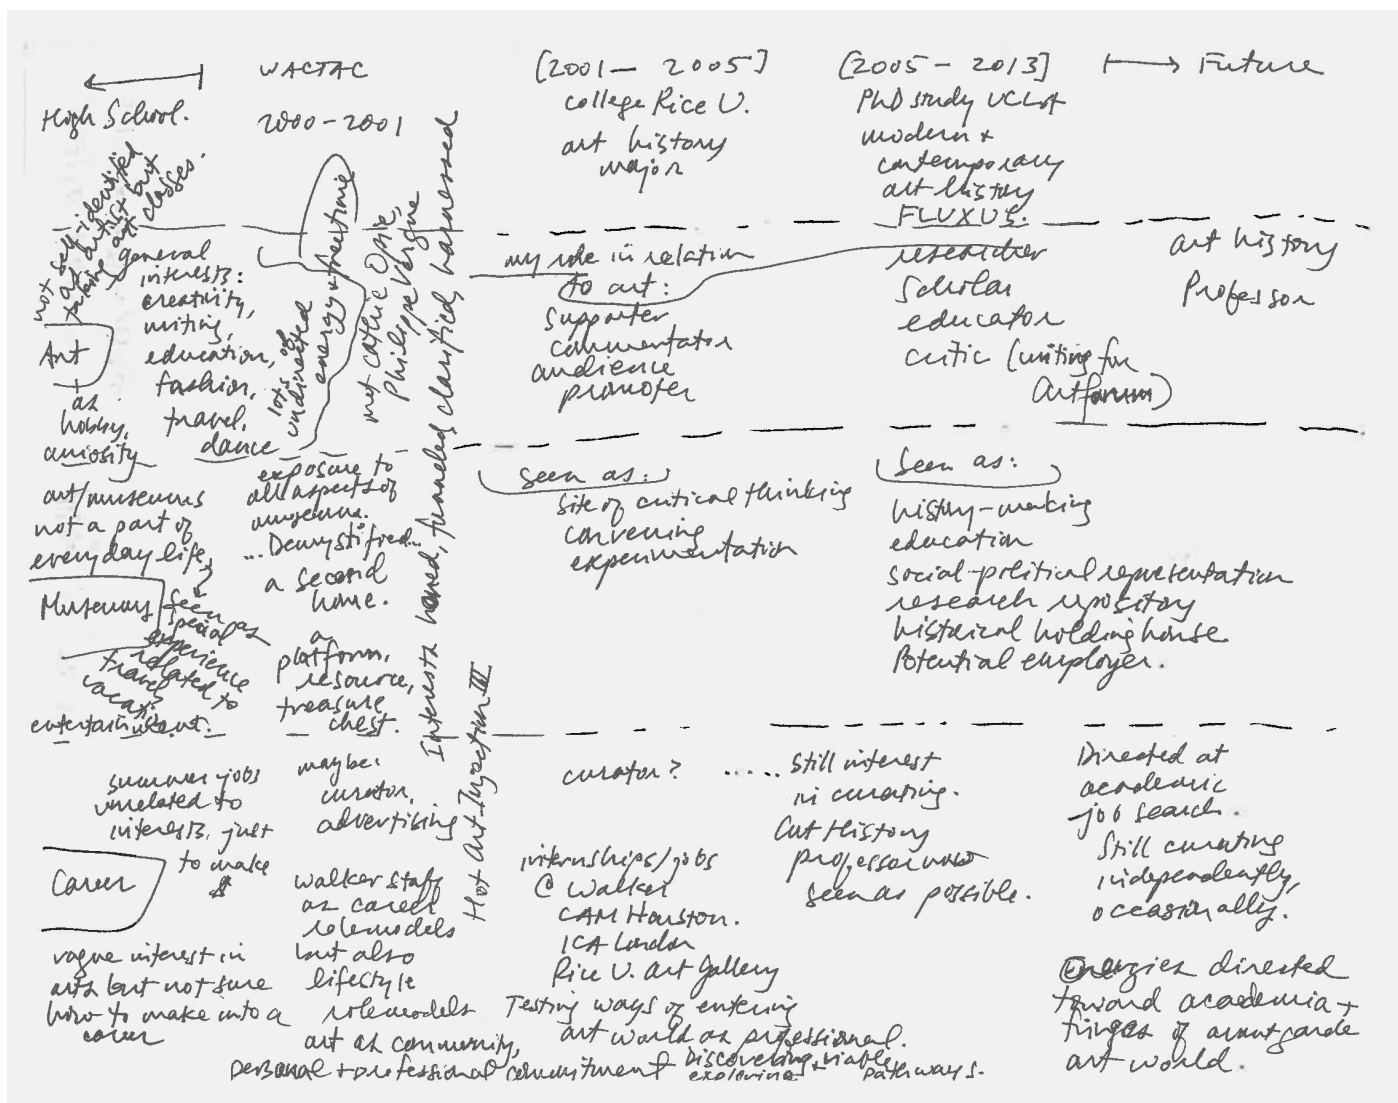 High School.
WACTAC
2000-2001
[2001 - 2005]
college Rice U.
art history
major
[2005 - 2013]
PhD study UCLA
modern +
contemporary
art history
FLUXUS.
Future
not self-identified
as artist but
taking art classes.
Art
as
hobby,
curiosity
general
interests:
creativity,
writing,
education,
fashion,
travel,
dance
lots of
undirected
energy + freetime
met Cathie Opie,
Philippe Vergne
Interests honed, funneled, clarified, harnessed
Hot Art Injection III
my role in relation
to art:
supporter
commentator
audience
promoter
researcher
scholar
educator
critic (writing for
Artforum)
art history
Professor
art/museums
not a part of
everyday life,
Museums
seen as
special
experience
related to
travel,
vacat.
entertainment.
exposure to
all aspects of
museum.
...Demystified...
a second
home.
a
platform,
resource,
treasure
chest.
seen as:
site of critical thinking
convening
experimentation
Seen as:
history-making
education
social-political representation
research repository
historical holding house
Potential employer.
summer jobs
unrelated to
interests, just
to make
$
Career
vague interest in
arts but not sure
how to make into a
career
maybe:
curator,
advertising
walker staff
as career
rolemodels
but also
lifestyle
rolemodels
art as community,
personal + professional commitment
curator? .....
internships/jobs
@ Walker
CAM Houston.
ICA London
Rice U. Art Gallery
Testing ways of entering
art world as professional.
Discovering viable
exploring + pathways.
Still interest
in curating.
Art History
professor now
seen as possible.
Directed at
academic
job search.
Still curating
independently,
occasionally.
Energies directed
toward academia +
fringes of avantgarde
art world.